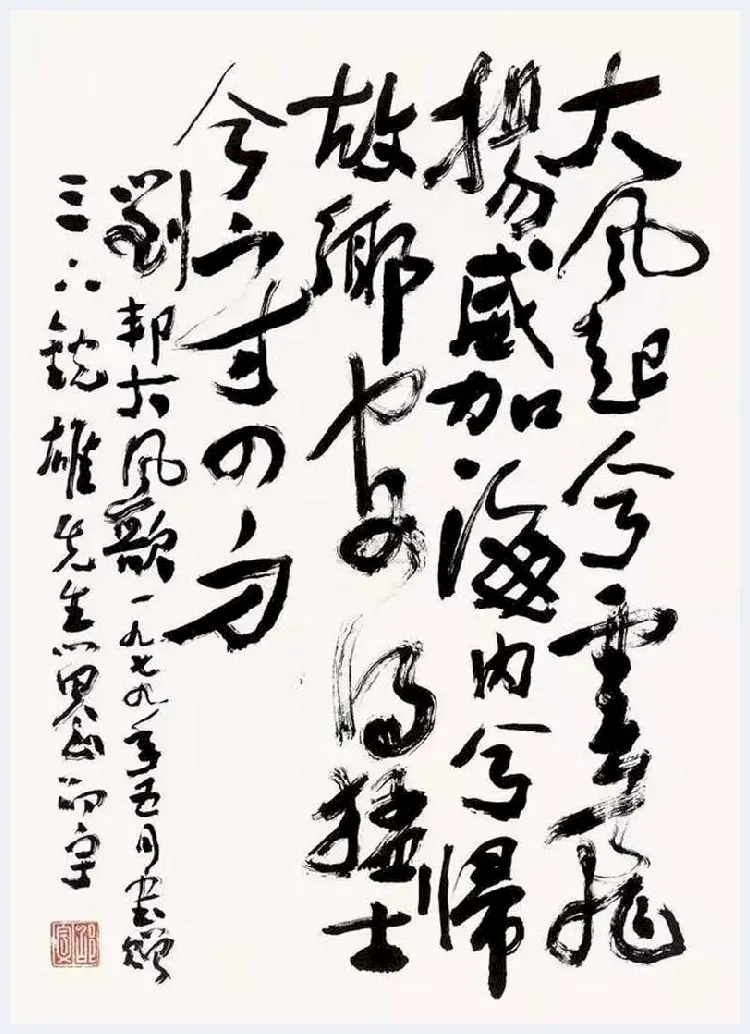 大風起兮雲飛
揚威加海內兮歸
故鄉安得猛士
兮守四方
劉邦大風歌 一九七九年五月書贈
雄先生 邵宇
邵宇